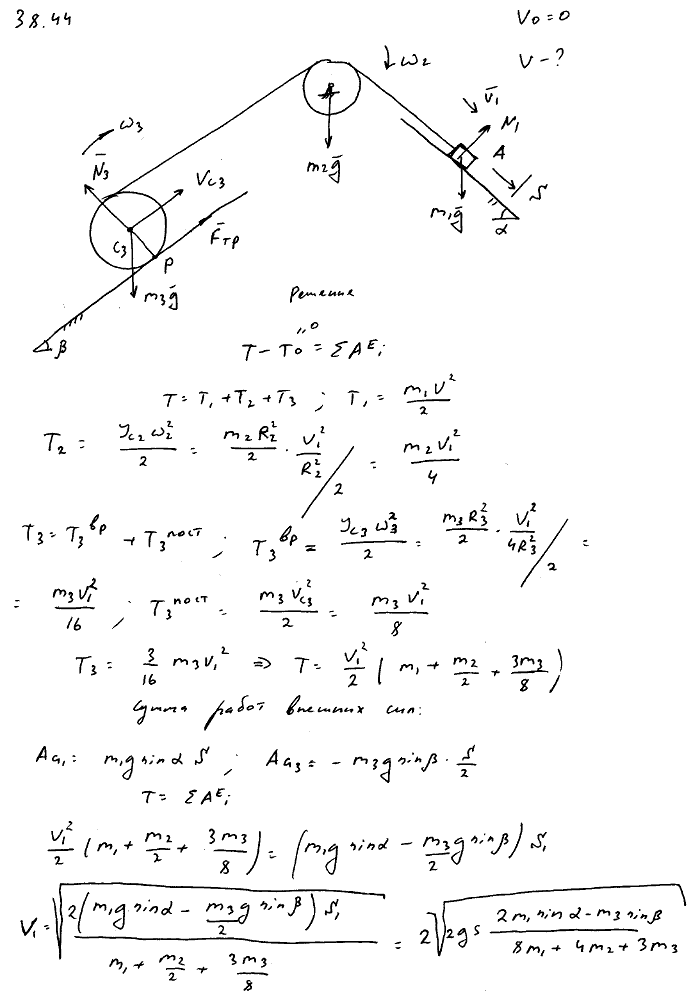 38.44
V₀ = 0
V - ?
ω₂
ω₃
V̄₁
N₁
A
N̄₃
V_C₃
m₂ḡ
S
m₁ḡ
α
C₃
F̄тр
P
m₃ḡ
β
Решение
T - T₀ = ΣAᴱᵢ
"0
T = T₁ + T₂ + T₃ ; T₁ = m₁V²/2
T₂ = J_C₂ω₂²/2 = m₂R₂²/2 · V₁²/R₂² / 2 = m₂V₁²/4
T₃ = T₃ᵇᵖ + T₃ᵖᵒᶜᵗ ; T₃ᵇᵖ = J_C₃ω₃²/2 = m₃R₃²/2 · V₁²/4R₃² / 2 =
= m₃V₁²/16 ; T₃ᵖᵒᶜᵗ = m₃V_C₃²/2 = m₃V₁²/8
T₃ = 3/16 m₃V₁² => T = V₁²/2 (m₁ + m₂/2 + 3m₃/8)
Сумма работ внешних сил:
Aɢ₁ = m₁g sinα S ; Aɢ₃ = - m₃g sinβ · S/2
T = ΣAᴱᵢ
V₁²/2 (m₁ + m₂/2 + 3m₃/8) = (m₁g sinα - m₃/2 g sinβ) S₁
V₁ = √(2(m₁g sinα - m₃g sinβ/2) S₁ / (m₁ + m₂/2 + 3m₃/8)) = 2√(2gS (2m₁ sinα - m₃ sinβ)/(8m₁ + 4m₂ + 3m₃))